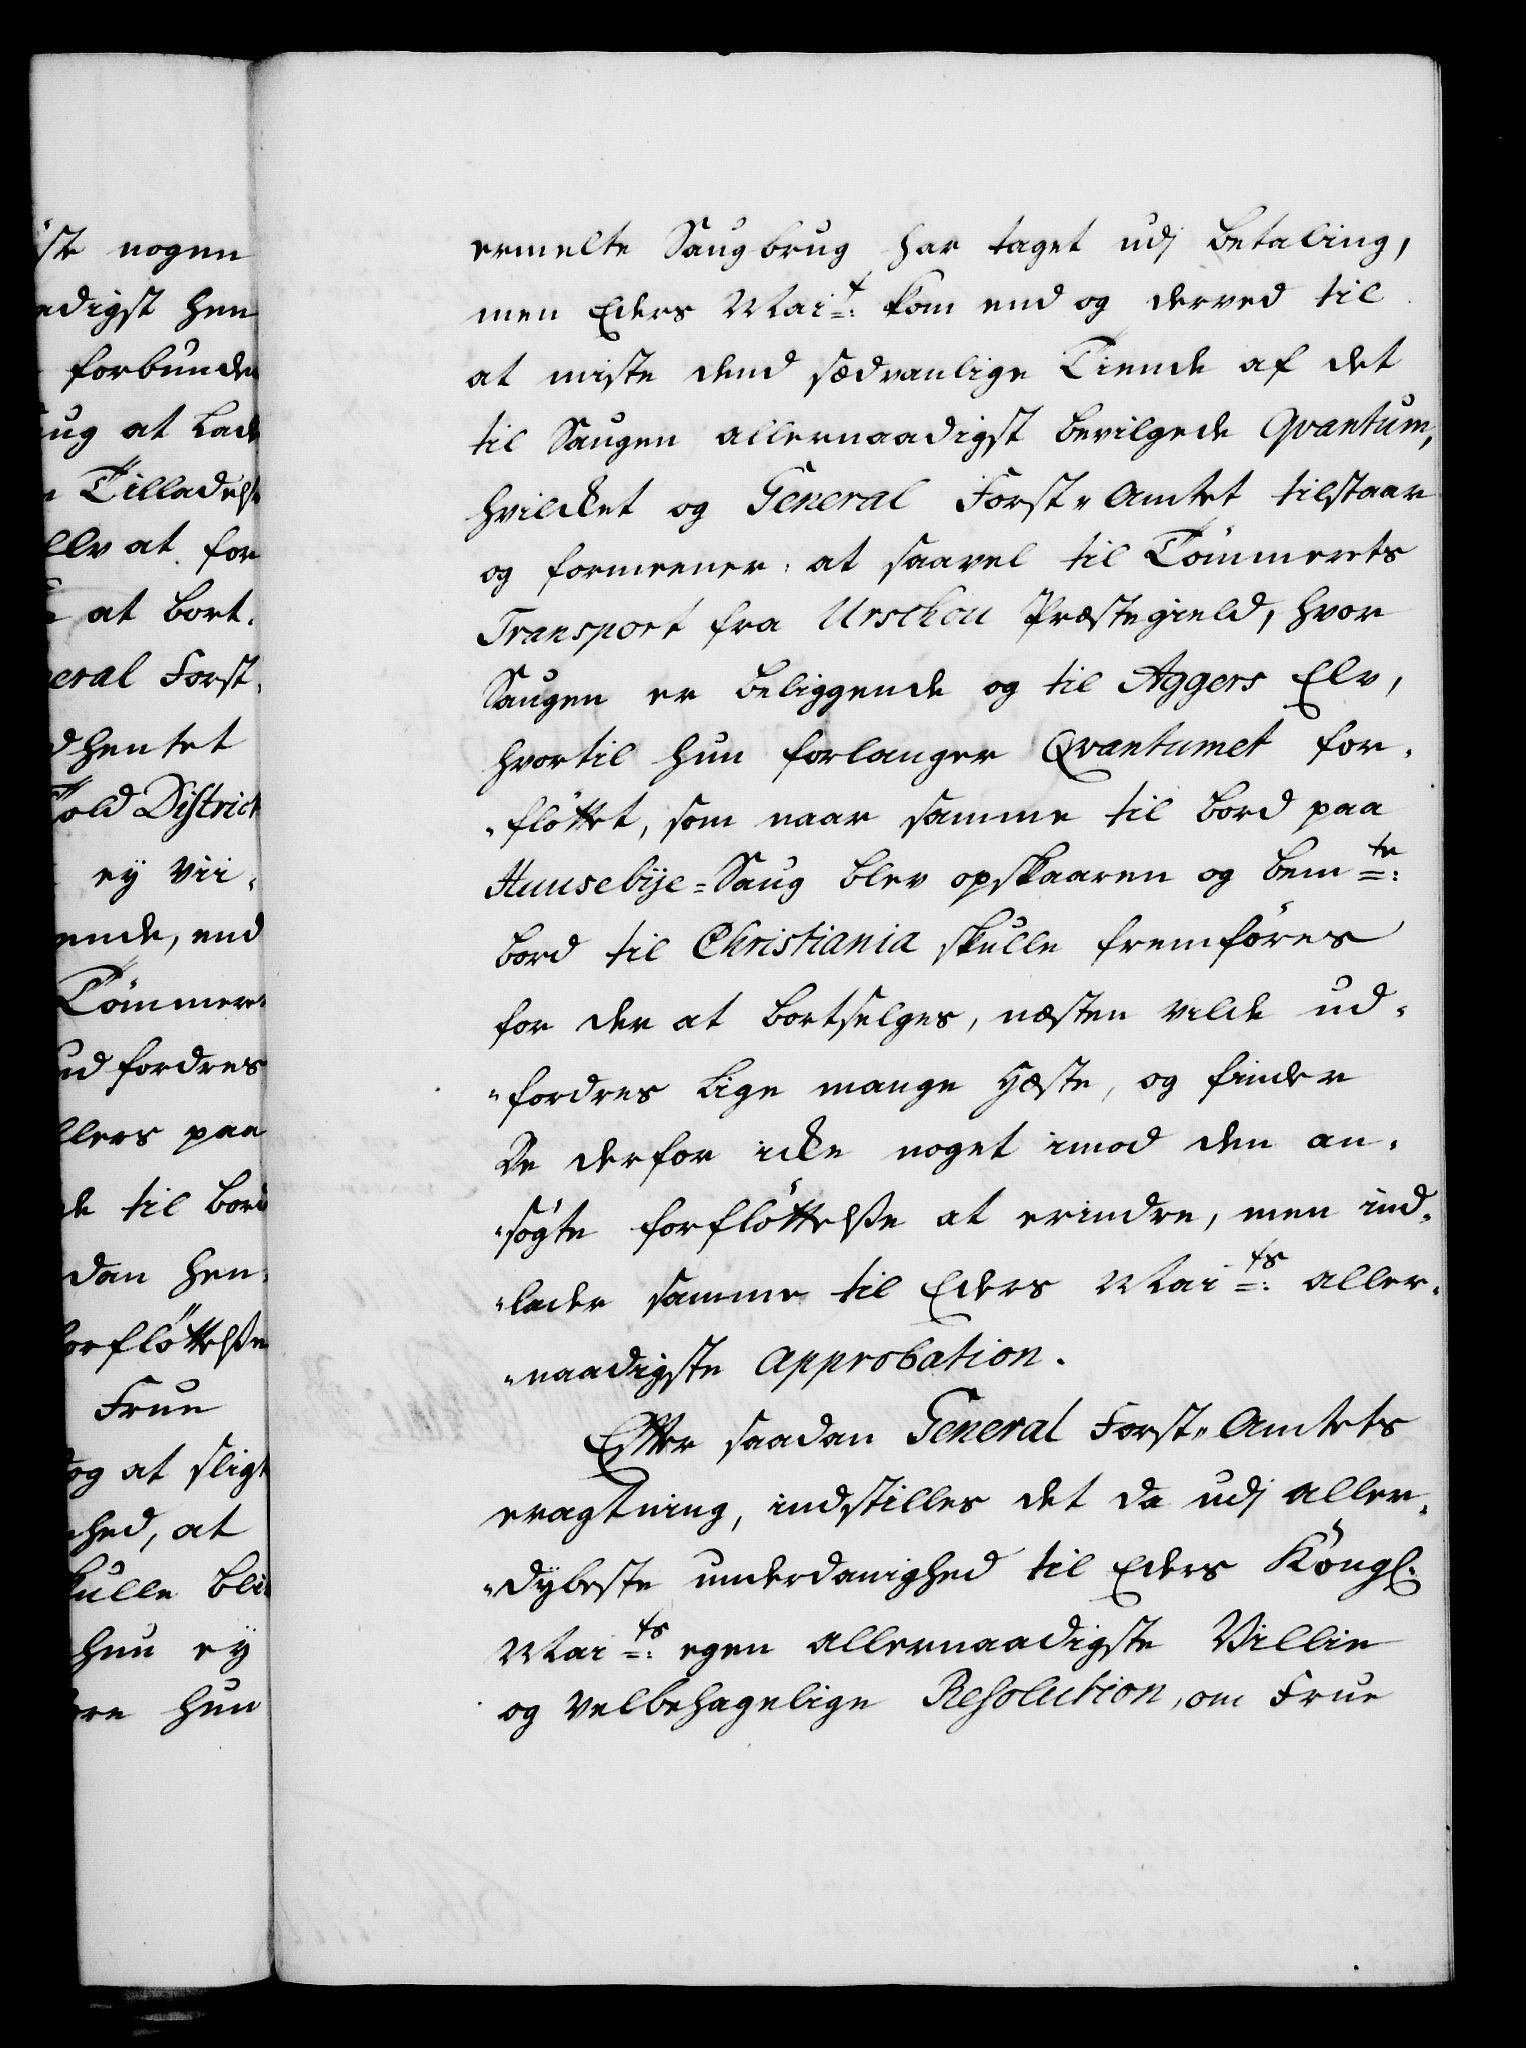 ste nogen
adigst hen
forbunden
aug at lade
n Tilladelse
elv at for
at bort-
neral Forst-
dhentet
Told District
ey vii-
ende, end
Tömmer-
ud fordres
llers paa
de til bord
dan hen-
forflöttelsse
Frue
og at sligt
hed, at
skulle bli
hun ey
hun
ermelte Saugbrug har taget udj betaling,
men Eders Mai:t kom end og derved til
at miste dend sædvanlige Tiende af det
til Saugen allernaadigst bevilgede Qvantum,
hvilcket og General Forst-Amtet tilstaar
og formeener, at saavel til Tömmerets
Transport fra Urschou Præstegield, hvor
Saugen er beliggende og til Aggers Elv,
hvortil hun forlanger Qvantumet for-
-flöttet, som naar samme til bord paa
Huusebye-Saug blev opskaaren og bem:te
bord til Christiania skulle fremföres
for der at bortselges, næsten vilde ud-
-fordres lige mange Hæste, og finder
De derfor icke noget imod den an-
-sögte forflöttelsse at erindre, men ind-
-lader samme til Eders Mai:ts aller-
-naadigste Approbation.
Efter saadan General Forst-Amtets
eragtning, indstilles det da udj aller-
-dybeste underdanighed til Eders Köngl:
Mai:ts egen allernaadigste Villie
og velbehagelige Resolution, om Frue